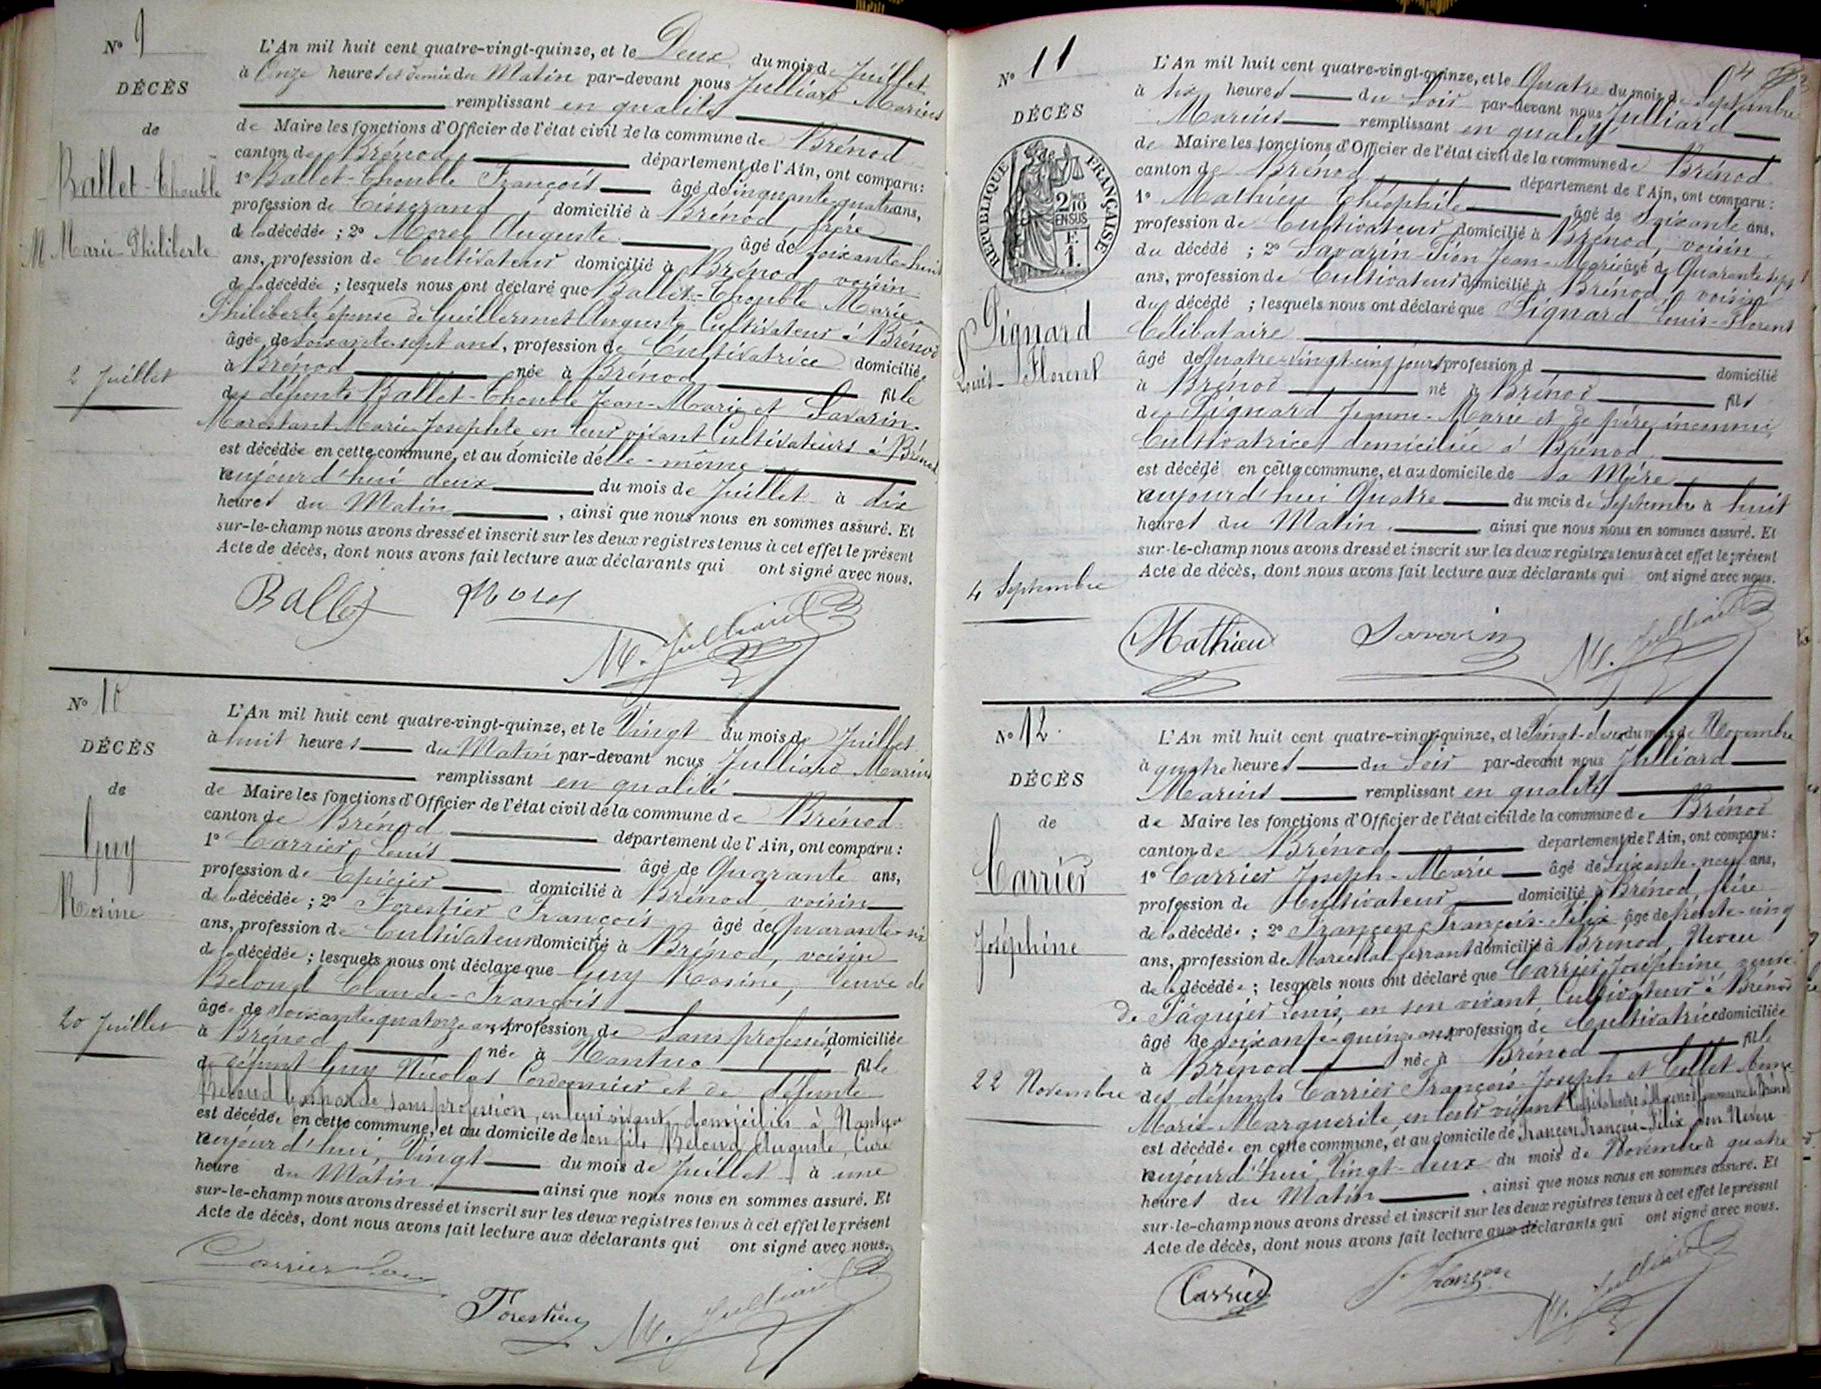 N° 9
DÉCÈS
de
Ballet-Thouble
M Marie-Philiberte
2 Juillet
L'An mil huit cent quatre-vingt-quinze, et le Deux du mois de Juillet
à Onze heures et demie du Matin par-devant nous Julliard Marius
remplissant en qualité
de Maire les fonctions d'Officier de l'état civil de la commune de Brénod
canton de Brénod département de l'Ain, ont comparu:
1° Ballet-Thouble François âgé de Cinquante-quatre ans,
profession de Tisserand domicilié à Brénod frère
de la décédée; 2° Morel Auguste âgé de soixante-huit
ans, profession de Cultivateur domicilié à Brénod voisin
de la décédée; lesquels nous ont déclaré que Ballet-Thouble Marie
Philiberte épouse de Guillermet Auguste Cultivateur à Brénod
âgée de soixante-sept ans, profession de Cultivatrice domiciliée
à Brénod née à Brénod fille
des défunts Ballet-Thouble Jean-Marie et Savarin-
Marestant Marie-Josephte en leur vivant Cultivateurs à Brénod
est décédée en cette commune, et au domicile d'elle-même
aujourd'hui deux du mois de Juillet à dix
heures du Matin, ainsi que nous nous en sommes assuré. Et
sur-le-champ nous avons dressé et inscrit sur les deux registres tenus à cet effet le présent
Acte de décès, dont nous avons fait lecture aux déclarants qui ont signé avec nous.
Ballet Morel
M. Julliard
N° 10
DÉCÈS
de
Guy
Rosine
20 Juillet
L'An mil huit cent quatre-vingt-quinze, et le Vingt du mois de Juillet
à huit heures du Matin par-devant nous Julliard Marius
remplissant en qualité
de Maire les fonctions d'Officier de l'état civil de la commune de Brénod
canton de Brénod département de l'Ain, ont comparu:
1° Carrier Louis âgé de Quarante ans,
profession de Epicier domicilié à Brénod, voisin
de la décédée; 2° Forestier François âgé de Quarante-six
ans, profession de Cultivateur domicilié à Brénod, voisin
de la décédée; lesquels nous ont déclaré que Guy Rosine, Veuve de
Beloud Claude-François
âgée de soixante-quatorze ans, profession de Sans profession, domiciliée
à Brénod née à Nantua fille
de défunt Guy Nicolas Cordonnier et de défunte
Beloud sans profession, en leur vivant domiciliés à Nantua
est décédée en cette commune, et au domicile de son fils Beloud Auguste, Curé
aujourd'hui, Vingt du mois de Juillet à une
heure du Matin ainsi que nous nous en sommes assuré. Et
sur-le-champ nous avons dressé et inscrit sur les deux registres tenus à cet effet le présent
Acte de décès, dont nous avons fait lecture aux déclarants qui ont signé avec nous.
Carrier Louis
Forestier M. Julliard
N° 11
DÉCÈS
de
RÉPUBLIQUE FRANÇAISE
2/10 EN SUS
Pignard
Louis-Florent
4 Septembre
L'An mil huit cent quatre-vingt-quinze, et le Quatre du mois de Septembre
à six heures du Soir par-devant nous Julliard
Marius remplissant en qualité
de Maire les fonctions d'Officier de l'état civil de la commune de Brénod
canton de Brénod département de l'Ain, ont comparu:
1° Mathieu Théophile âgé de Soixante ans,
profession de Cultivateur domicilié à Brénod, voisin
du décédé; 2° Savarin-Pion Jean-Marie âgé de Quarante-sept
ans, profession de Cultivateur domicilié à Brénod, voisin
du décédé; lesquels nous ont déclaré que Pignard Louis-Florent
Célibataire
âgé de Quatre-vingt-cinq jours profession d domicilié
à Brénod né à Brénod fils
de Pignard Jeanne-Marie et de père inconnu,
Cultivatrice, domiciliée à Brénod
est décédé en cette commune, et au domicile de sa Mère
aujourd'hui Quatre du mois de Septembre à huit
heures du Matin ainsi que nous nous en sommes assuré. Et
sur-le-champ nous avons dressé et inscrit sur les deux registres tenus à cet effet le présent
Acte de décès, dont nous avons fait lecture aux déclarants qui ont signé avec nous.
Mathieu Savarin M. Julliard
N° 12
DÉCÈS
de
Carrier
Joséphine
22 Novembre
L'An mil huit cent quatre-vingt-quinze, et le Vingt-deux du mois de Novembre
à quatre heures du Soir par-devant nous Julliard
Marius remplissant en qualité
de Maire les fonctions d'Officier de l'état civil de la commune de Brénod
canton de Brénod département de l'Ain, ont comparu:
1° Carrier Joseph-Marie âgé de Soixante-neuf ans,
profession de Cultivateur domicilié à Brénod, frère
de la décédée; 2° Françon François-Félix âgé de trente-cinq
ans, profession de Maréchal ferrant domicilié à Brénod, Neveu
de la décédée; lesquels nous ont déclaré que Carrier Joséphine veuve
de Paquier Louis, en son vivant Cultivateur à Brénod
âgé de soixante-quinze ans profession de Cultivatrice domiciliée
à Brénod née à Brénod fille
des défunts Carrier François-Joseph et Collet Anne
Marie-Marguerite, en leur vivant Commune de Brénod
est décédée en cette commune, et au domicile de Françon François-Félix son Neveu
aujourd'hui Vingt-deux du mois de Novembre à quatre
heures du Matin, ainsi que nous nous en sommes assuré. Et
sur-le-champ nous avons dressé et inscrit sur les deux registres tenus à cet effet le présent
Acte de décès, dont nous avons fait lecture aux déclarants qui ont signé avec nous.
Carrier F. Françon M. Julliard